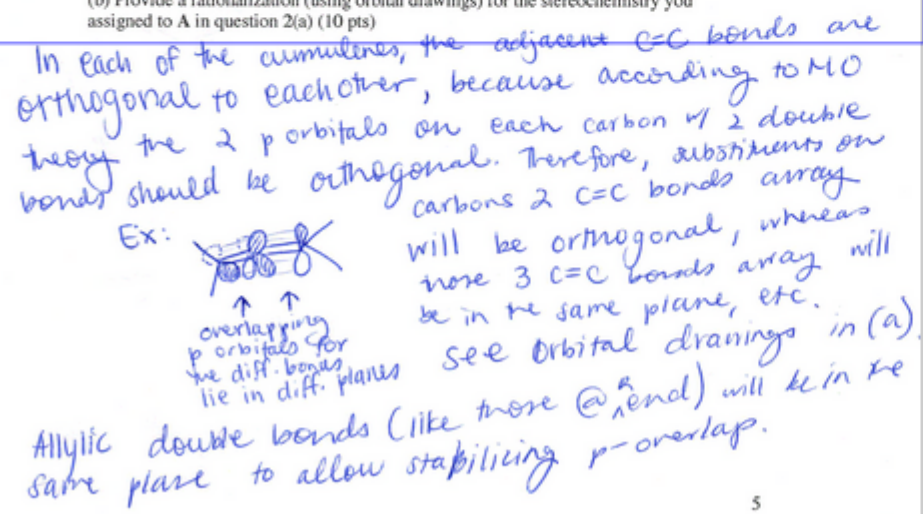 (b) Provide a rationalization (using orbital drawings) for the stereochemistry you
assigned to A in question 2(a) (10 pts)
In each of the cumulenes, the adjacent C=C bonds are
orthogonal to eachother, because according to MO
theory the 2 p orbitals on each carbon w/ 2 double
bonds should be orthogonal. Therefore, substituents on
carbons 2 C=C bonds array
Ex:
will be orthogonal, whereas
those 3 C=C bonds array will
be in the same plane, etc.
overlapping
p orbitals for
the diff. bonds
lie in diff. planes
see orbital drawings in (a)
Allylic double bonds (like those @ R end) will be in the
same plane to allow stabilizing p-overlap.
5